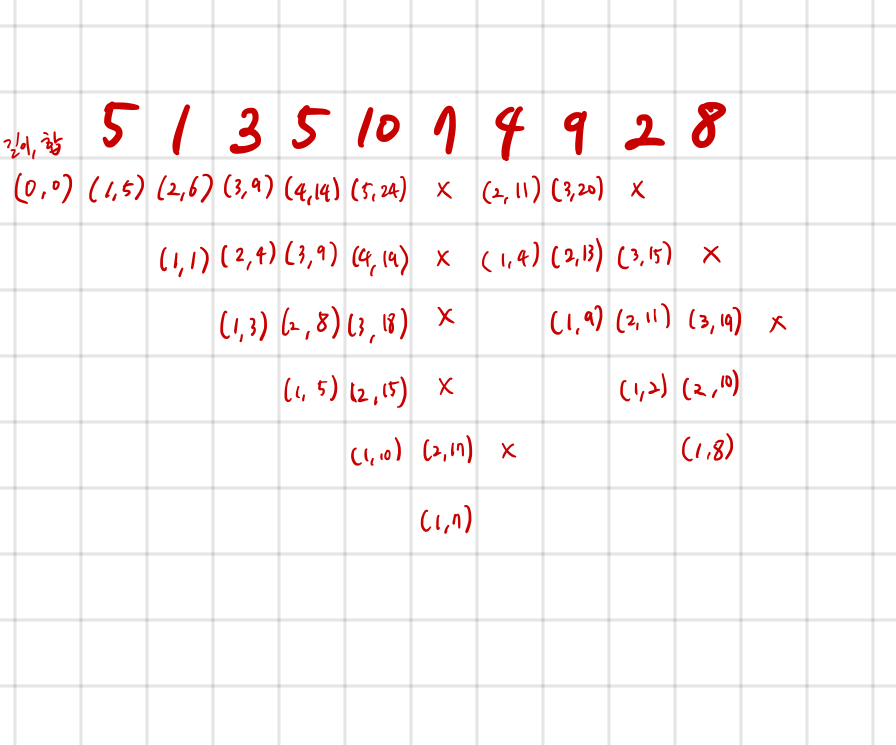 5 1 3 5 10 7 4 9 2 8
길이, 합
(0,0) (1,5) (2,6) (3,9) (4,14) (5,24) x (2,11) (3,20) x
(1,1) (2,4) (3,9) (4,19) x (1,4) (2,13) (3,15) x
(1,3) (2,8) (3,18) x (1,9) (2,11) (3,19) x
(1,5) (2,15) x (1,2) (2,10)
(1,10) (2,17) x (1,8)
(1,7)